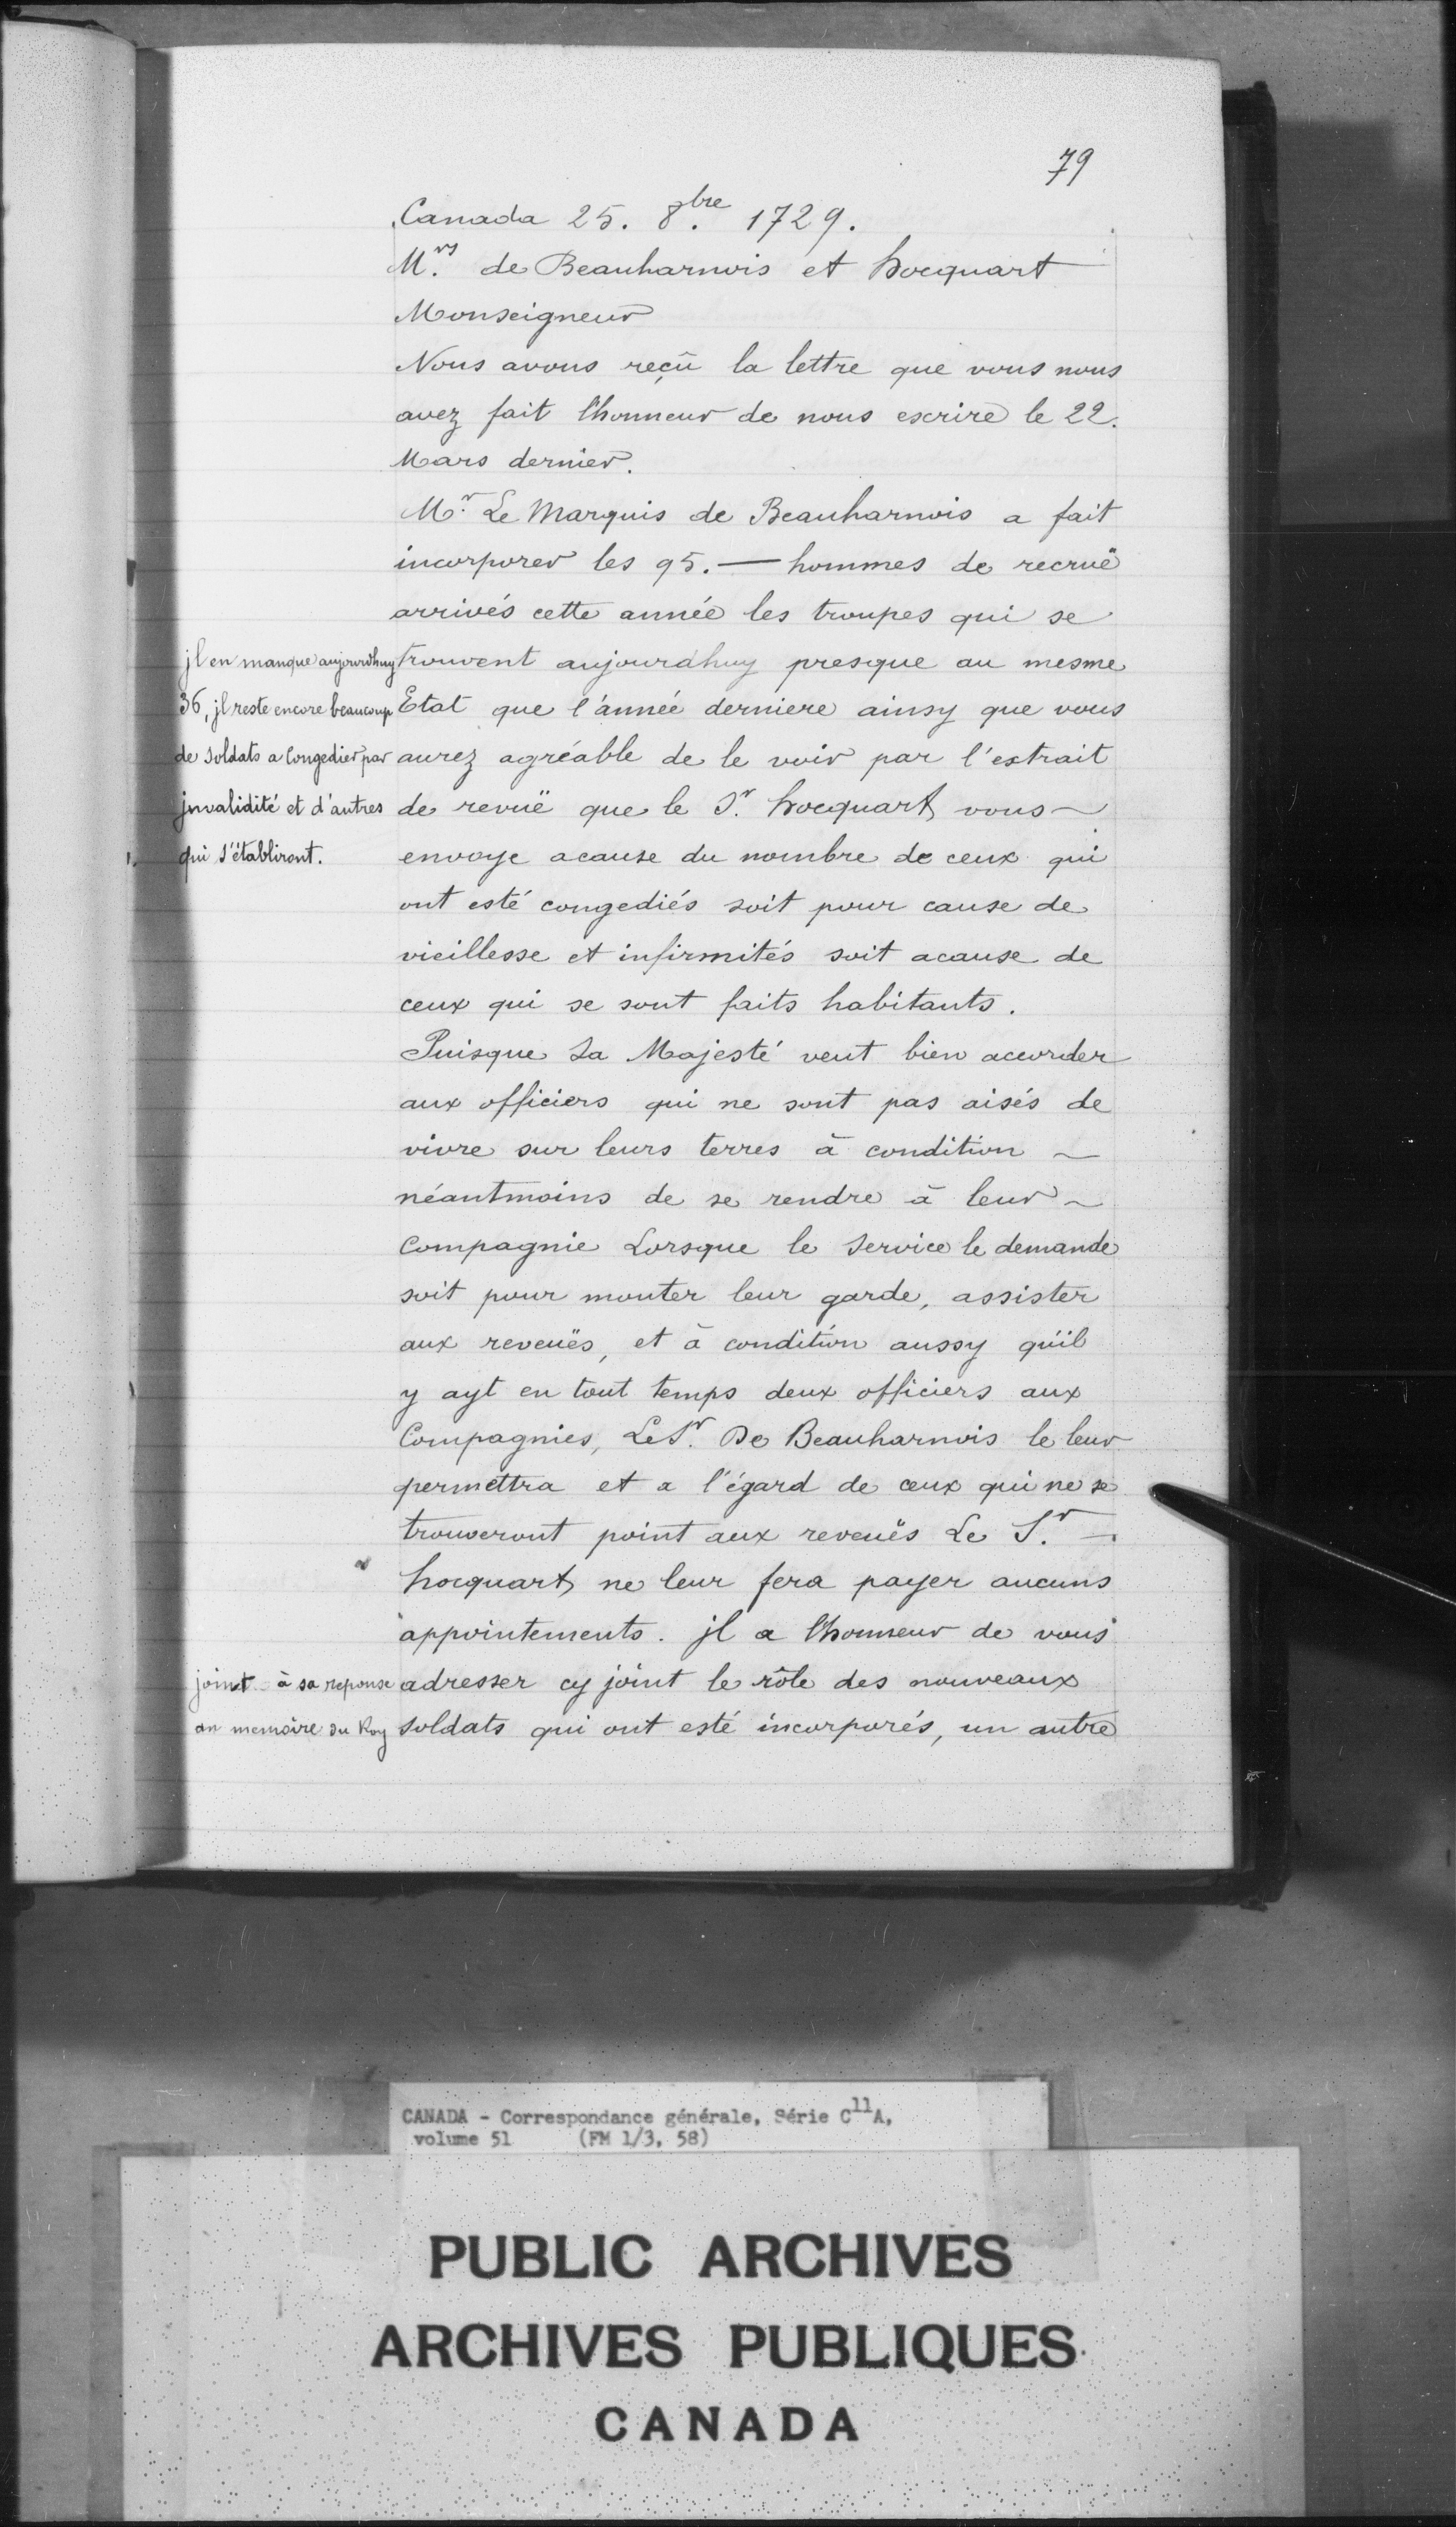 79
Canada 25. 8bre. 1729.
Mrs. de Beauharnois et hocquart
Monseigneur
Nous avons reçû la lettre que vous nous
avez fait l'honneur de nous escrire le 22.
Mars dernier.
Mr. Le Marquis de Beauharnois a fait
incorporer les 95. — hommes de recruë
arrivés cette année les troupes qui se
trouvent aujourdhuy presque au mesme
Etat que l'année derniere ainsy que vous
aurez agréable de le voir par l'extrait
de revuë que le Sr. hocquart vous ~
envoye acause du nombre de ceux qui
ont esté congediés soit pour cause de
vieillesse et infirmités soit acause de
ceux qui se sont faits habitants.
jl en manque aujourdhuy
36, jl reste encore beaucoup
de soldats a Congedier par
jnvalidité et d'autres
qui s'établiront.
Puisque Sa Majesté veut bien accorder
aux officiers qui ne sont pas aisés de
vivre sur leurs terres à condition ~
néantmoins de se rendre à leur ~
Compagnie Lorsque le Service le demande
soit pour monter leur garde, assister
aux reveuës, et à condition aussy qu'il
y ayt en tout temps deux officiers aux
Compagnies, Le Sr. De Beauharnois le leur
permettra et a l'égard de ceux qui ne se
trouveront point aux reveuës Le Sr. —
hocquart ne leur fera payer aucuns
appointements. jl a l'honneur de vous
adresser cy joint le rôle des nouveaux
soldats qui ont esté incorporés, un autre
joint à sa reponse
au memoire du Roy
CANADA - Correspondance générale, Série C11A,
volume 51 (FM 1/3, 58)
PUBLIC ARCHIVES
ARCHIVES PUBLIQUES
CANADA